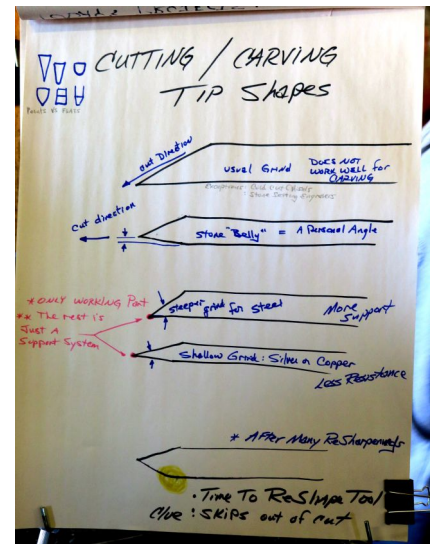 CUTTING / CARVING
TIP SHAPES
Points vs Flats
Cut Direction
usual Grind
DOES NOT
WORK WELL for
CARVING
Exceptions:
Cut direction
stone "Belly" = A Personal Angle
* ONLY WORKING Part
** The rest is
Just A
Support System
steeper grind for steel
More
Support
Shallow Grind: Silver or Copper
Less Resistance
* After Many ReSharpenings
• Time To ReShape Tool
Clue: SKIPS out of cut